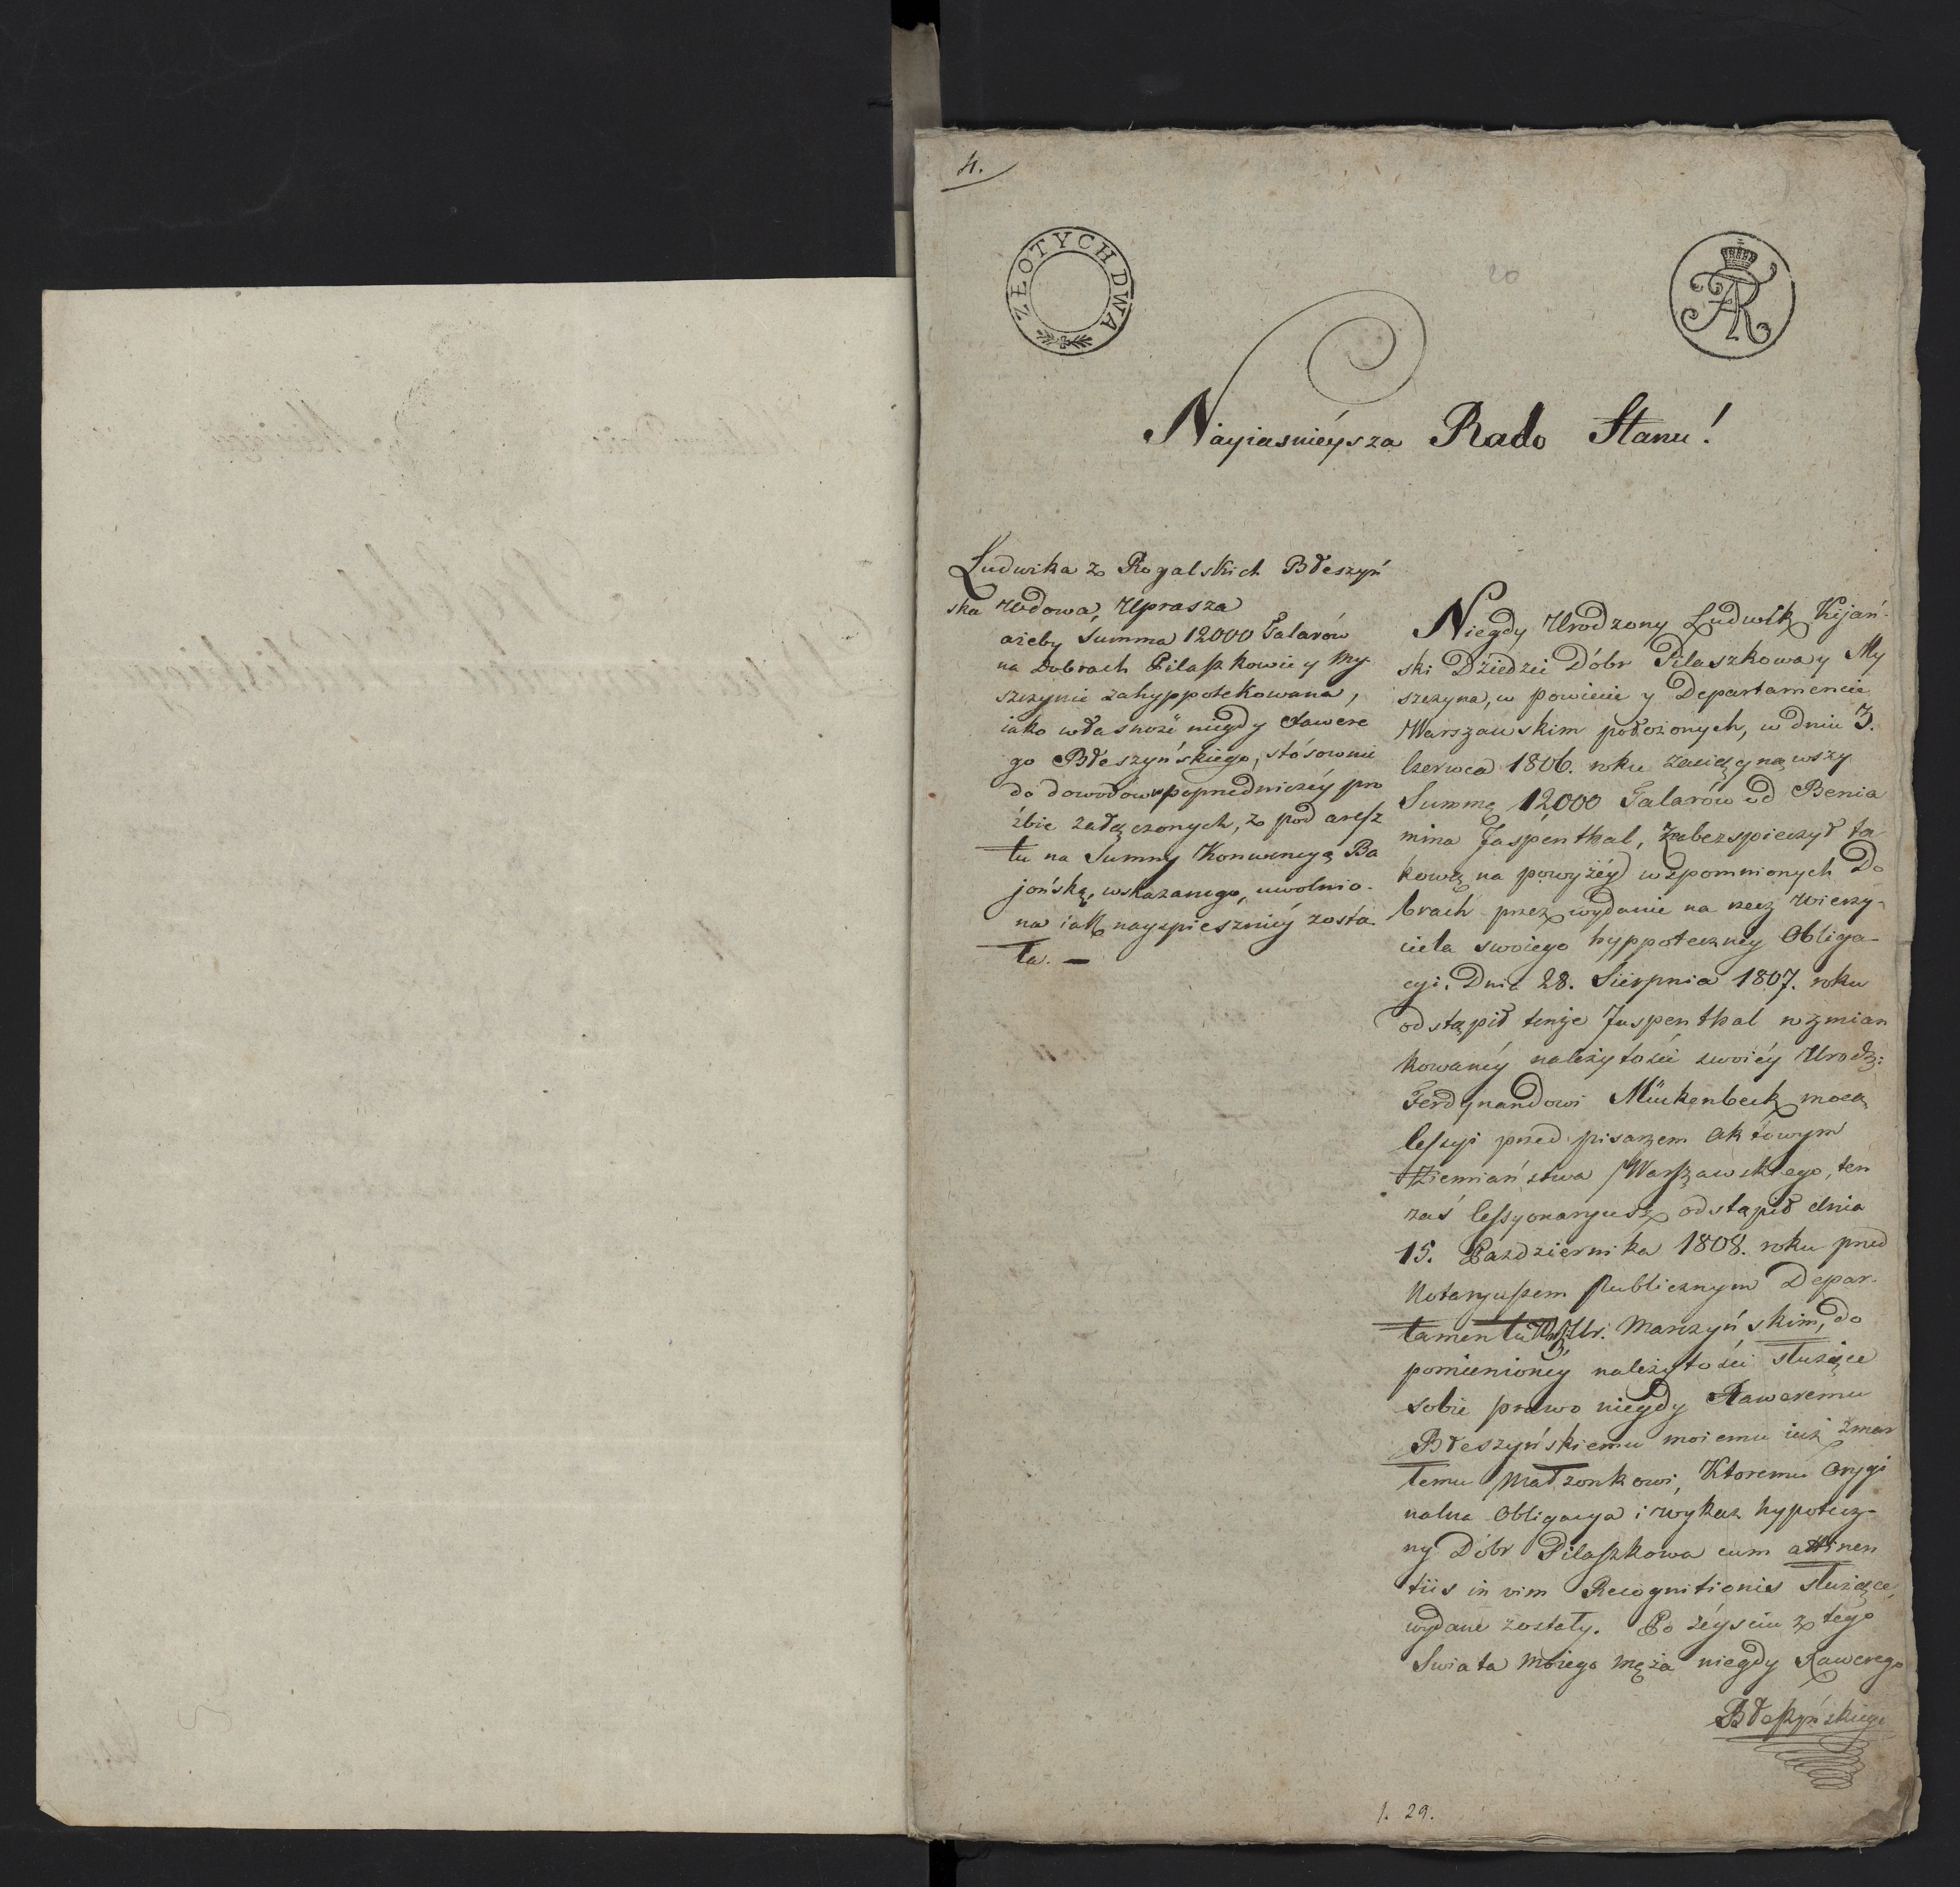 4.
ZŁOTYCH DWA
20
FAR
Nayiasnieysza Rado Stanu!
Ludwika z Rogalskich Błeszyń
ska Wdowa, Uprasza
ażeby Summa 12000 Talarów
na Dobrach Pilaszkowie y My-
szczynie zahyppotekowana,
iako własność niegdy Xawere
go Błeszyńskiego, stósownie
do dowodów poprzedniczéy pro
źbie załączonych, z pod aresz
tu na Summy Konwencyą Ba
jońską, wskazanego, uwolnio-
na iak nayspieszniéy zosta-
ła. —
Niegdy Urodzony Ludwik Kijań-
ski Dziedzic Dóbr Pilaszkowa y My
szczyna, w powiecie y Departamencie
Warszawskim położonych, w dniu 3.
Czerwca 1806. roku zaciągnąwszy
Summę 12,000 Talarów od Benia
mina Jaspenthal, zabezspieczył ta
kową na powyżéy wspomnionych Do
brach przez wydanie na rzecz Wierzy-
ciela swoiego hyppoteczney Obliga-
cyi. Dnia 28. Sierpnia 1807. roku
odstąpił tenże Jaspenthal wzmian
kowanéy należytości swoiéy Urodz:
Ferdynandowi Mückenbeck mocą
Cessyi przed pisarzem Aktowym
Ziemiaństwa Warszawskiego, ten
zaś Cessyonaryusz odstąpił dnia
15. Pazdziernika 1808. roku przed
Notaryuszem Publicznym Depar-
tamentu Ur. Marszyńskim, do
pomienionéy należytości służące
sobie prawo niegdy Xaweremu
Błeszyńskiemu moiemu iuż zmar
łemu Małżonkowi, Ktoremu Orygi
nalna Obligacya i wykaz hypotecz-
ny Dóbr Pilaszkowa cum attinen
tiis in vim Recognitionis służące,
wydane zostały. Po zéyściu z tego
Swiata moiego męża niegdy Xawerego
Błeszyńskiego
1. 29.